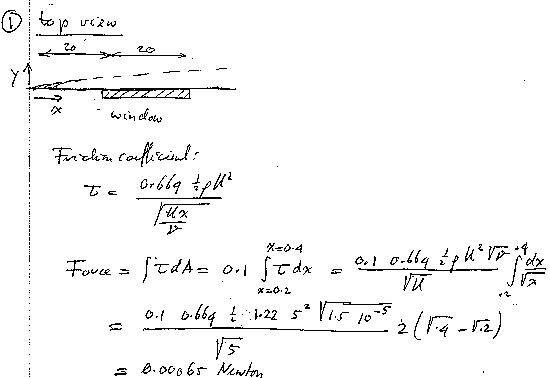 ① top view
20 20
Y
x
window
Friction coefficient:
τ = 0.664 ½ρU² / √(Ux/ν)
Force = ∫τdA = 0.1 ∫_{x=0.2}^{x=0.4} τdx = 0.1 0.664 ½ρU²√ν / √U ∫_{.2}^{.4} dx/√x
= 0.1 0.664 ½ 1.22 5² √(1.5 10⁻⁵) / √5 2(√.4 - √.2)
= 0.00065 Newton